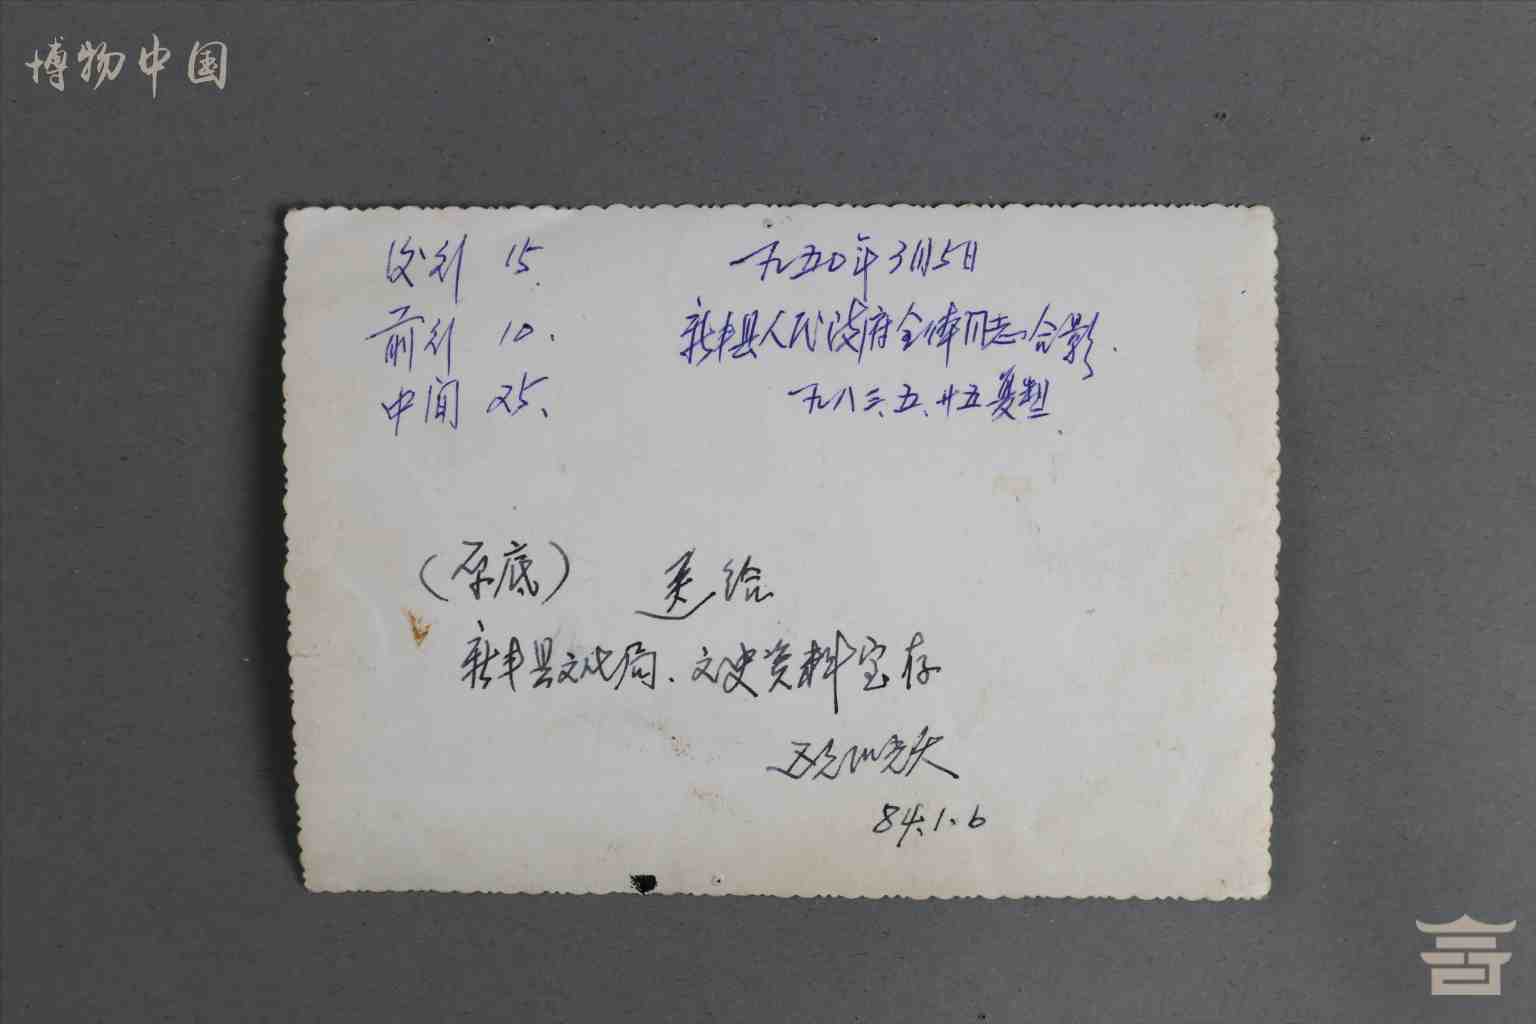 博物中国
後行 15.
前行 10.
中间 25.
一九五〇年3月5日
新丰县人民政府全体同志合影.
一九八三、五、廿五复制
(原底) 送给
新丰县文化局、文史资料室存
84.1.6